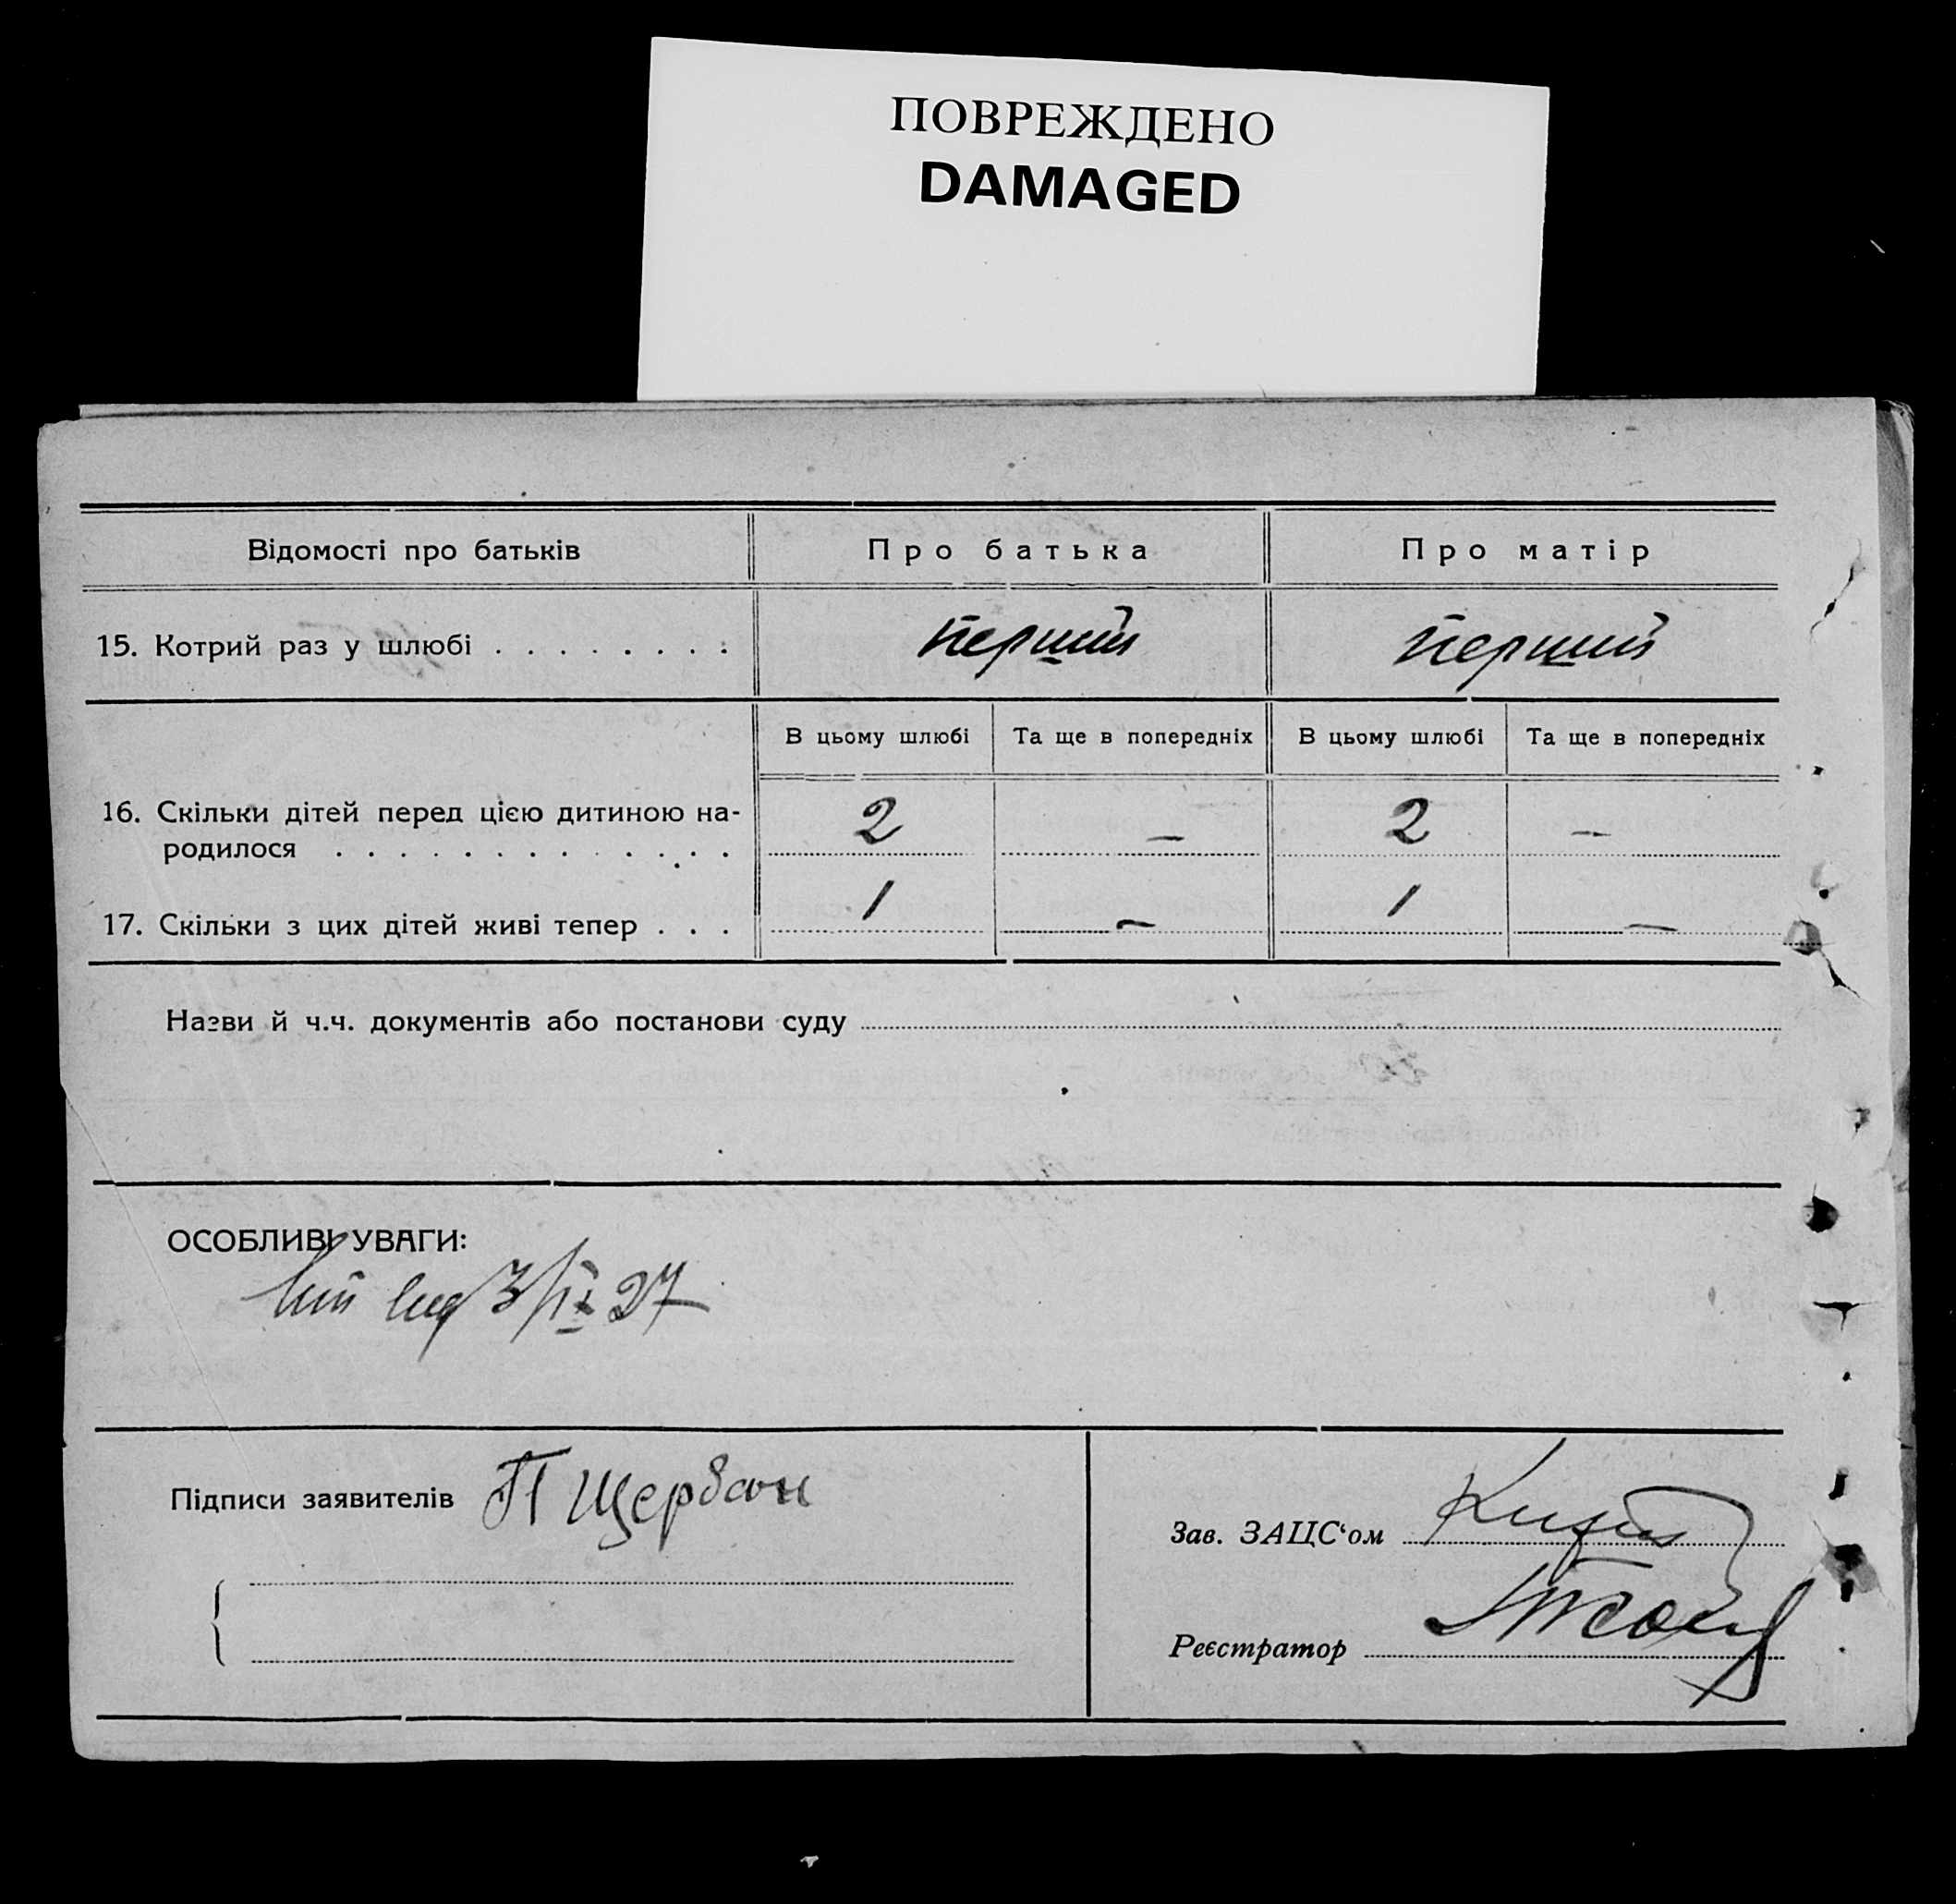 ПОВРЕЖДЕНО
DAMAGED
Відомості про батьків Про батька Про матір
15. Котрий раз у шлюбі . . . . . . . . . перший перший
В цьому шлюбі Та ще в попередніх В цьому шлюбі Та ще в попередніх
16. Скільки дітей перед цією дитиною на-
родилося . . . . . . . . . . . . . . 2 — 2 —
17. Скільки з цих дітей живі тепер . . . 1 — 1 —
Назви й ч.ч. документів або постанови суду
ОСОБЛИВІ УВАГИ:
3/IX 27
Підписи заявителів П Щербан
Зав. ЗАЦС‘ом
Реєстратор